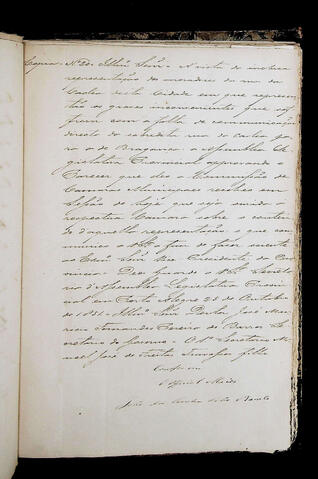 Copia = Nº 20. Illmo Snr. - A vista da inclusa
representação dos moradores da rua da
desta Cidade em que represen-
tão os graves inconvenientes que sof-
frem com a falta de communicação
directa da sobredita rua do para
a de Bragança, a Assemblea Le-
gislativa Provincial, approvando o
Parecer que deo a Commissão de
Camaras Municipaes resolveo em
Sessão de hoje que seja ouvida a
respectiva Camara sobre o conteu-
do d'aquella representação: o que com-
munico a VSª a fim de fazer sciente
ao Exmo Snr Vice Presidente da Pro-
vincia. - Deos guarde a VSª. Secreta-
ria d'Assemblea Legislativa Provin-
cial em Porto Alegre 25 de Outubro
de 1851 - Illmo Snr Doutor José Mar-
cia Fernandes Pereira de Barros Se-
cretario do Governo - O 1º Secretario Ma-
noel José de Freitas Travassos filho
Conforme
O Official Maior
João da Cunha